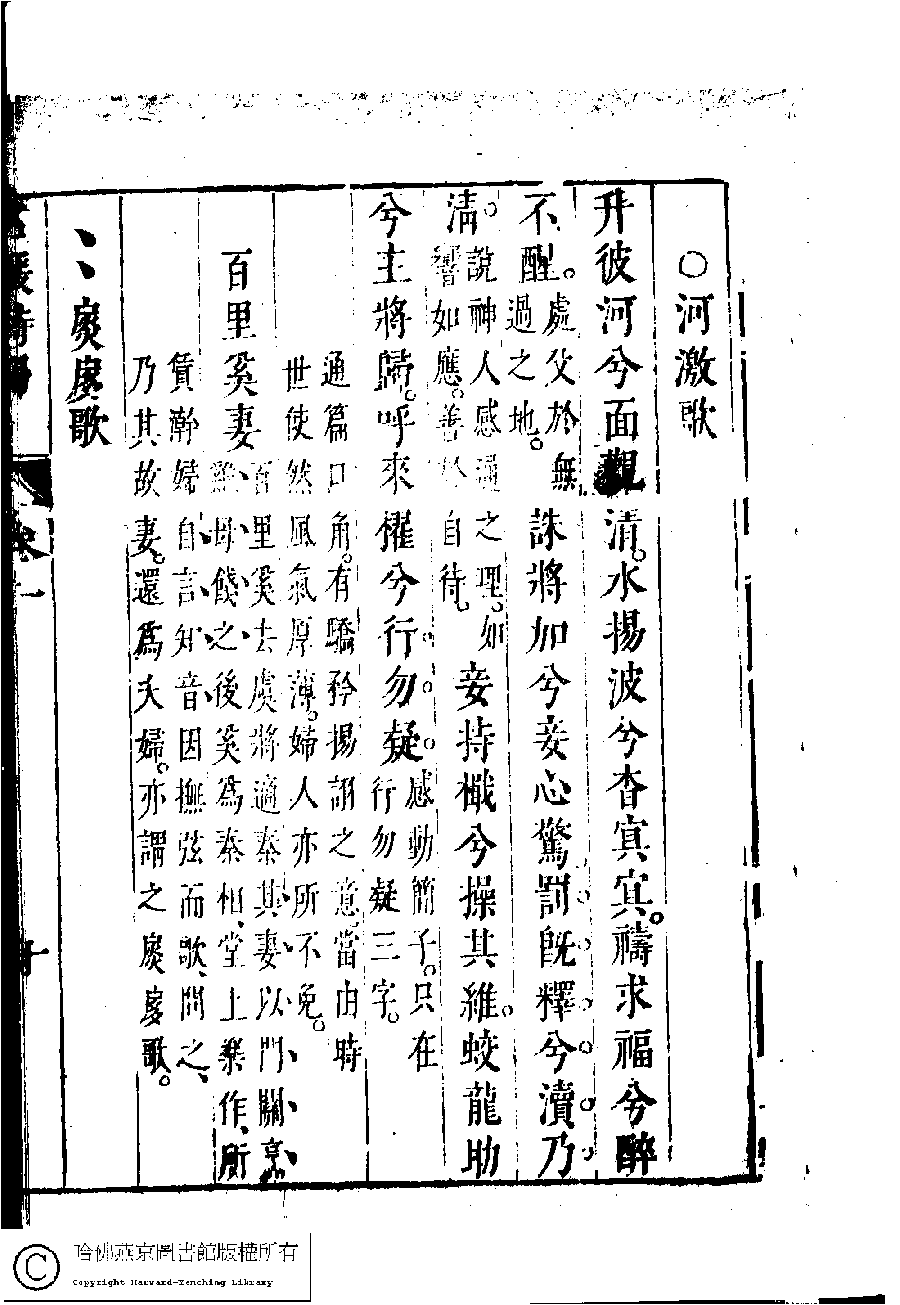 ○河激歌
升彼河兮面觀清。水揚波兮杳冥冥。禱求福兮醉
不醒。處父於無過之地。誅將加兮妾心驚罰旣釋兮瀆乃
清。說神人感通之理。如響如應。善於自待。妾持檝兮操其維。蛟龍助
兮主將歸。呼來櫂兮行勿疑。感動簡子。只在行勿疑三字。
通篇口角。有驕矜揚詡之意。當由時
世使然風氣厚薄。婦人亦所不免。
百里奚妻
百里奚去虞將適秦其妻以門關烹
雞、母餞之後奚爲秦相、堂上樂作、所
賃澣婦自言、知音因撫弦而歌、問之、
乃其故妻。還爲夫婦。亦謂之扊扅歌。
扊扅歌
卷一
哈佛燕京圖書館版權所有
Copyright Harvard-Yenching Library